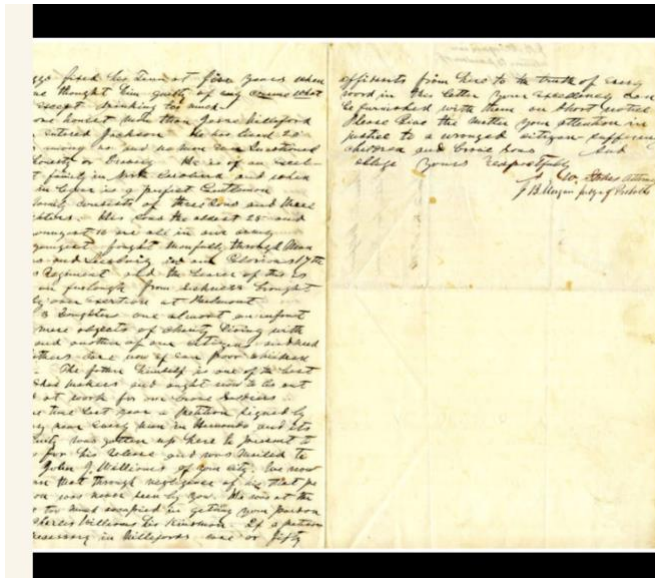 fixed his Term at five years when
thought him guilty of any crime what
except drinking too much
one honest man than Jesse Williford
entered Jackson He has lived 20
among us and no man ever questioned
honesty or bravery He is of an excel-
t family in North Carolina and when
is a perfect Gentleman
family consists of three sons and three
His sons the oldest 25 and
youngest 16 are all in our army
youngest fought manfully through
and in our Glorious 17th
Regiment and the bearer of this is
on furlough from sickness brought
by over exertion at
3 Daughters one almost an infant
mere objects of charity living with
and another of our citizens and need
The father himself is one of the best
shoe makers and ought now to be out
at work for our brave soldiers
time last year a Petition signed by
near every man in Hernando and its
was gotten up here to present to
for his release and was mailed to
John J. Williams of your city. We now
that through negligence of
was never seen by you. He was at the
too much occupied in getting your pardon
Charles Williams his kinsman. If a petition
necessary in Willifords case or fifty
affidavits from here to the truth of every
word in this letter your excellency can
be furnished with them on short notice
Please give the matter your attention in
justice to a wronged citizen - suffering
children and brave sons And
oblige yours respectfully
W. Stokes
J B Morgan judge of Probate